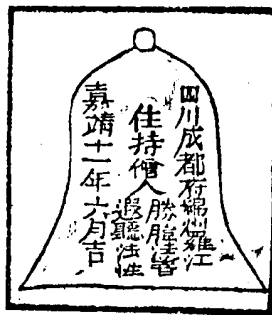 四川成都府綿州羅江
住持僧人
聽法性
嘉靖十一年六月吉